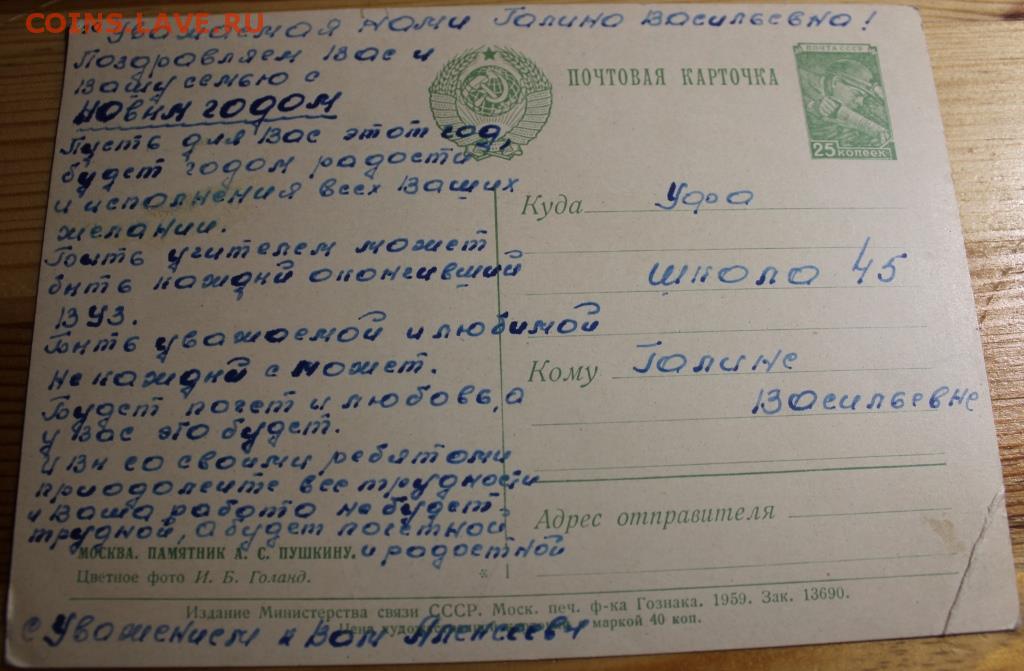 COINS.LAVE.RU
Уважаемая нами Галина Васильевна!
Поздравляем Вас и
Вашу семью с
новым годом
Пусть для Вас этот год,
будет годом радости
и исполнения всех Ваших
желании.
Быть учителем может
быть каждй окончивший
ВУЗ.
Быть уважаемой и любимой
не каждй сможет.
Будет почет и любовь, а
у Вас это будет.
и Вы со своими ребятами
приодолеите все трудности
и Ваша работа не будет
трудной, а будет почетной
и радостной
МОСКВА. ПАМЯТНИК А. С. ПУШКИНУ.
Цветное фото И. Б. Голанд.
ПОЧТОВАЯ КАРТОЧКА
ПОЧТА СССР
25 КОПЕЕК
Куда Уфа
школа 45
Кому Галине
Васильевне
Адрес отправителя
Издание Министерства связи СССР. Моск. печ. ф-ка Гознака. 1959. Зак. 13690.
Цена художественной с маркой 40 коп.
с Уважением к Вам Алексееви